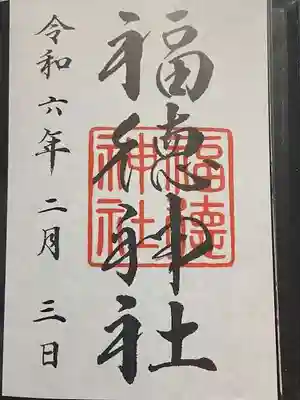 福徳神社
令和六年二月三日
福徳
神社